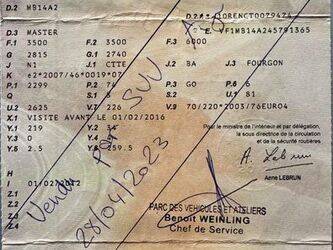 D.2 MB14A2 D.2.1 M10RENCT0079424
D.3 MASTER E. VF1MB14A245791365
F.1 3500 F.2 3500 F.3 6000
G 2815 G.1 2740
J N1 J.1 CTTE J.2 BA J.3 FOURGON
K e2*2007/46*0019*07
P.1 2299 P.3 GO P.6
Q S.1
U.2 2625 V.7 226 V.9 70/220*2003/76EURO4
X.1 VISITE AVANT LE 01/02/2016
Y.1 219 Y.2 34
Y.3 Y.4
Y.5 2.5 Y.6 259.5
Pour le ministre de l'intérieur et par délégation,
la sous directrice de la circulation
et de la sécurité routières
Anne LEBRUN
H
I 01/02/2012
Z.1
Z.2
Z.3
Z.4
Vendu
28/04/2023
PARC DES VEHICULES ET ATELIERS
Benoit WEINLING
Chef de Service